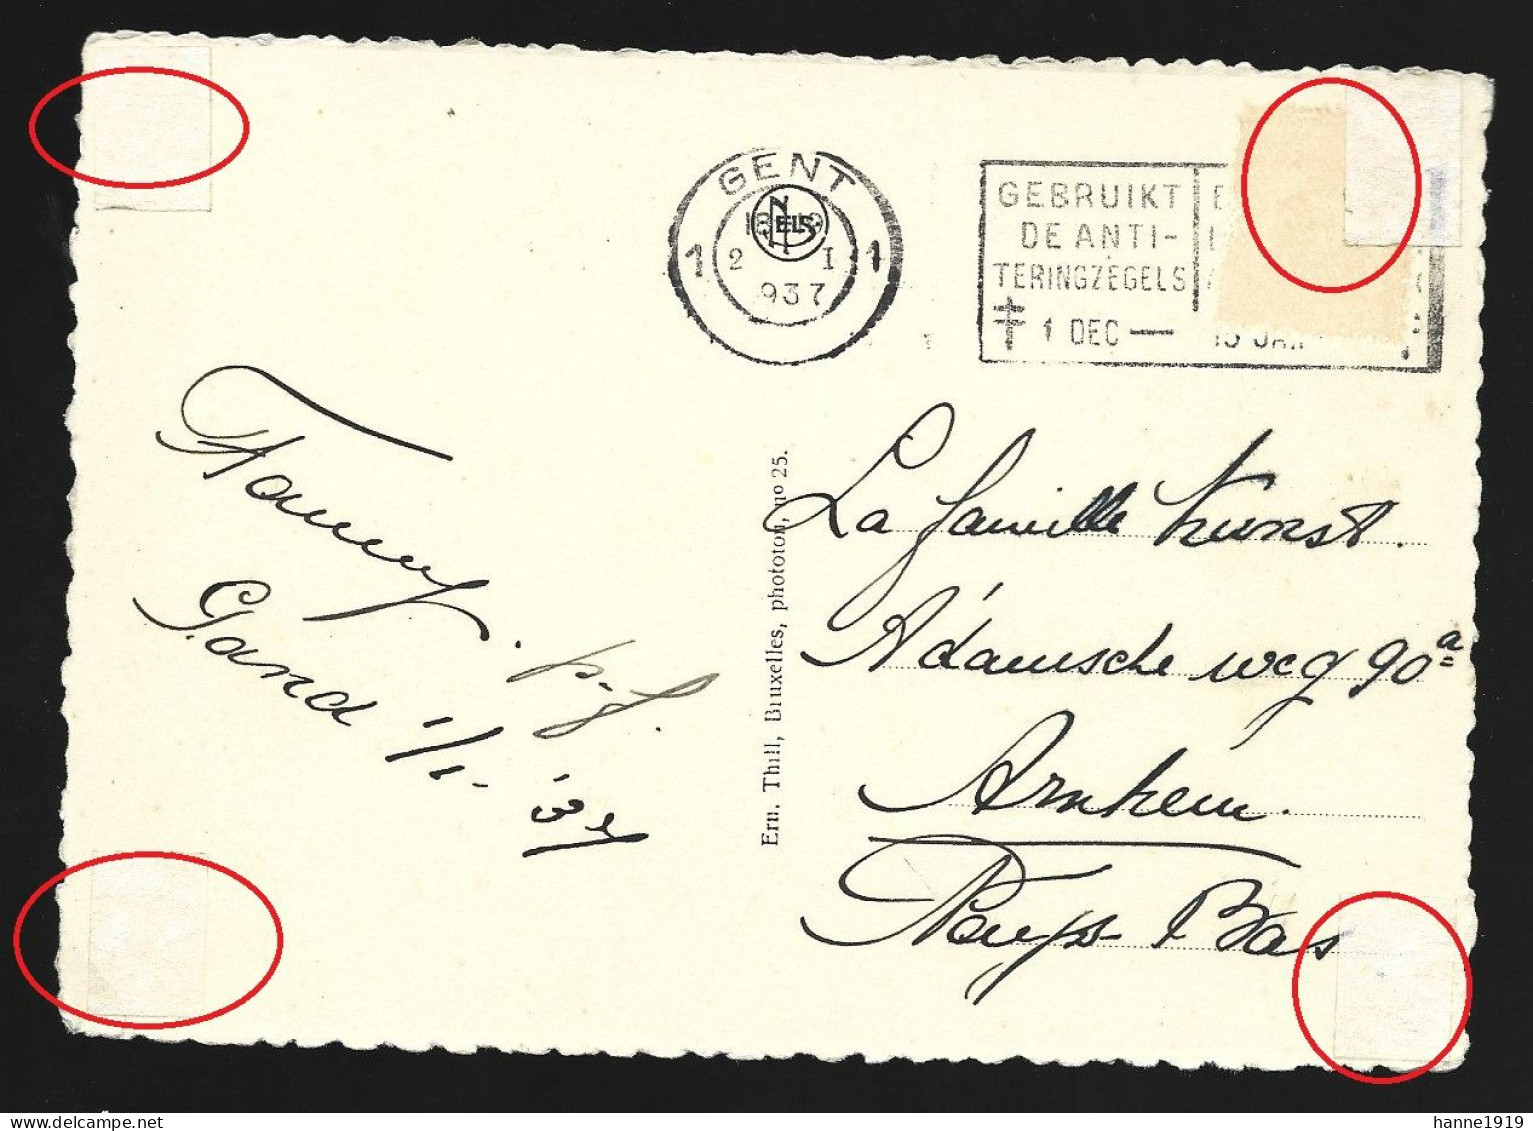 GENT
1 1
2 I
937
NELS
GEBRUIKT
DE ANTI-
TERINGZEGELS
1 DEC —
Fanny.
p.f.
Gand 1/1-'37
Ern. Thill, Bruxelles, phototop. no 25.
La famille Kunst.
Adamsche weg 90a
Arnhem.
Pays-Bas
hanne1919